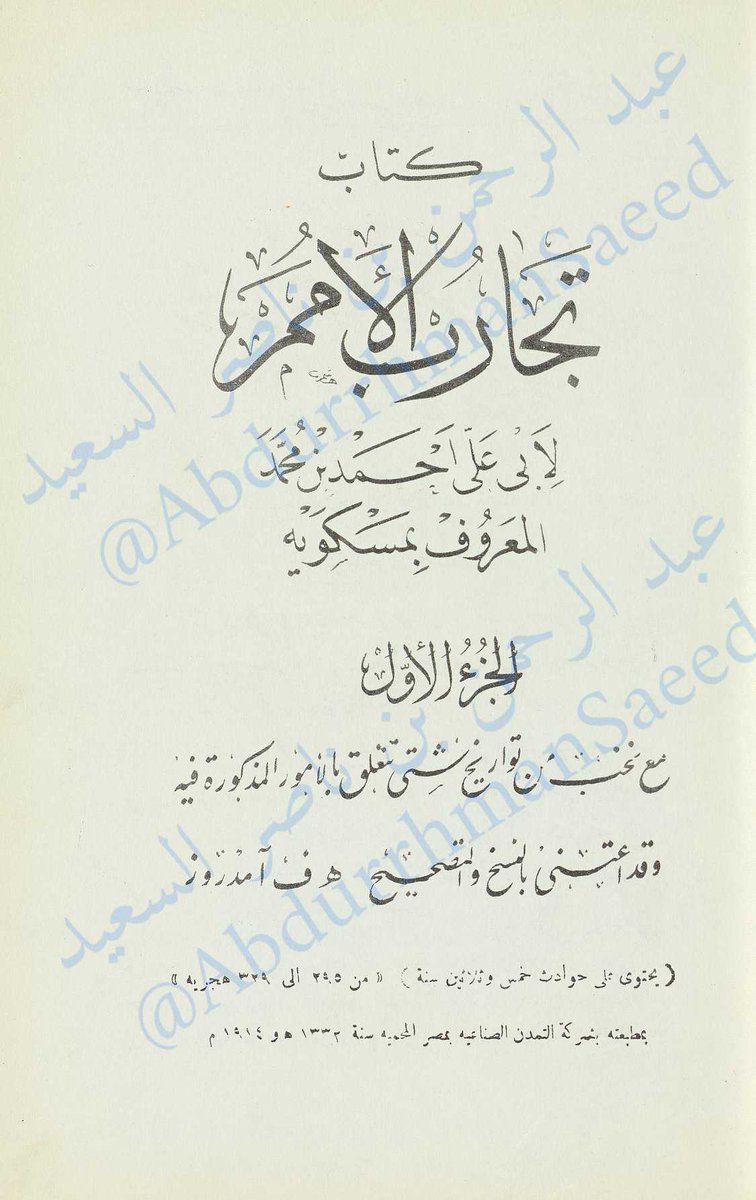 كتاب
تجارب الأمم
لأبي علي أحمد بن محمد
المعروف بمسكويه
الجزء الأول
مع نخب من تواريخ شتى تتعلق بالأمور المذكورة فيه
وقد اعتنى بالنسخ والتصحيح هـ ف آمدروز
( يحتوى على حوادث خمس وثلاثين سنة ) « من ٢٩٥ الى ٣٢٩ هجريه »
بمطبعته بشركة التمدن الصناعيه بمصر المحميه سنة ١٣٣٢ هـ و ١٩١٤ م
عبد الرحمن بن ناصر السعيد
@AbdurrhmanSaeed
عبد الرحمن بن ناصر السعيد
@AbdurrhmanSaeed